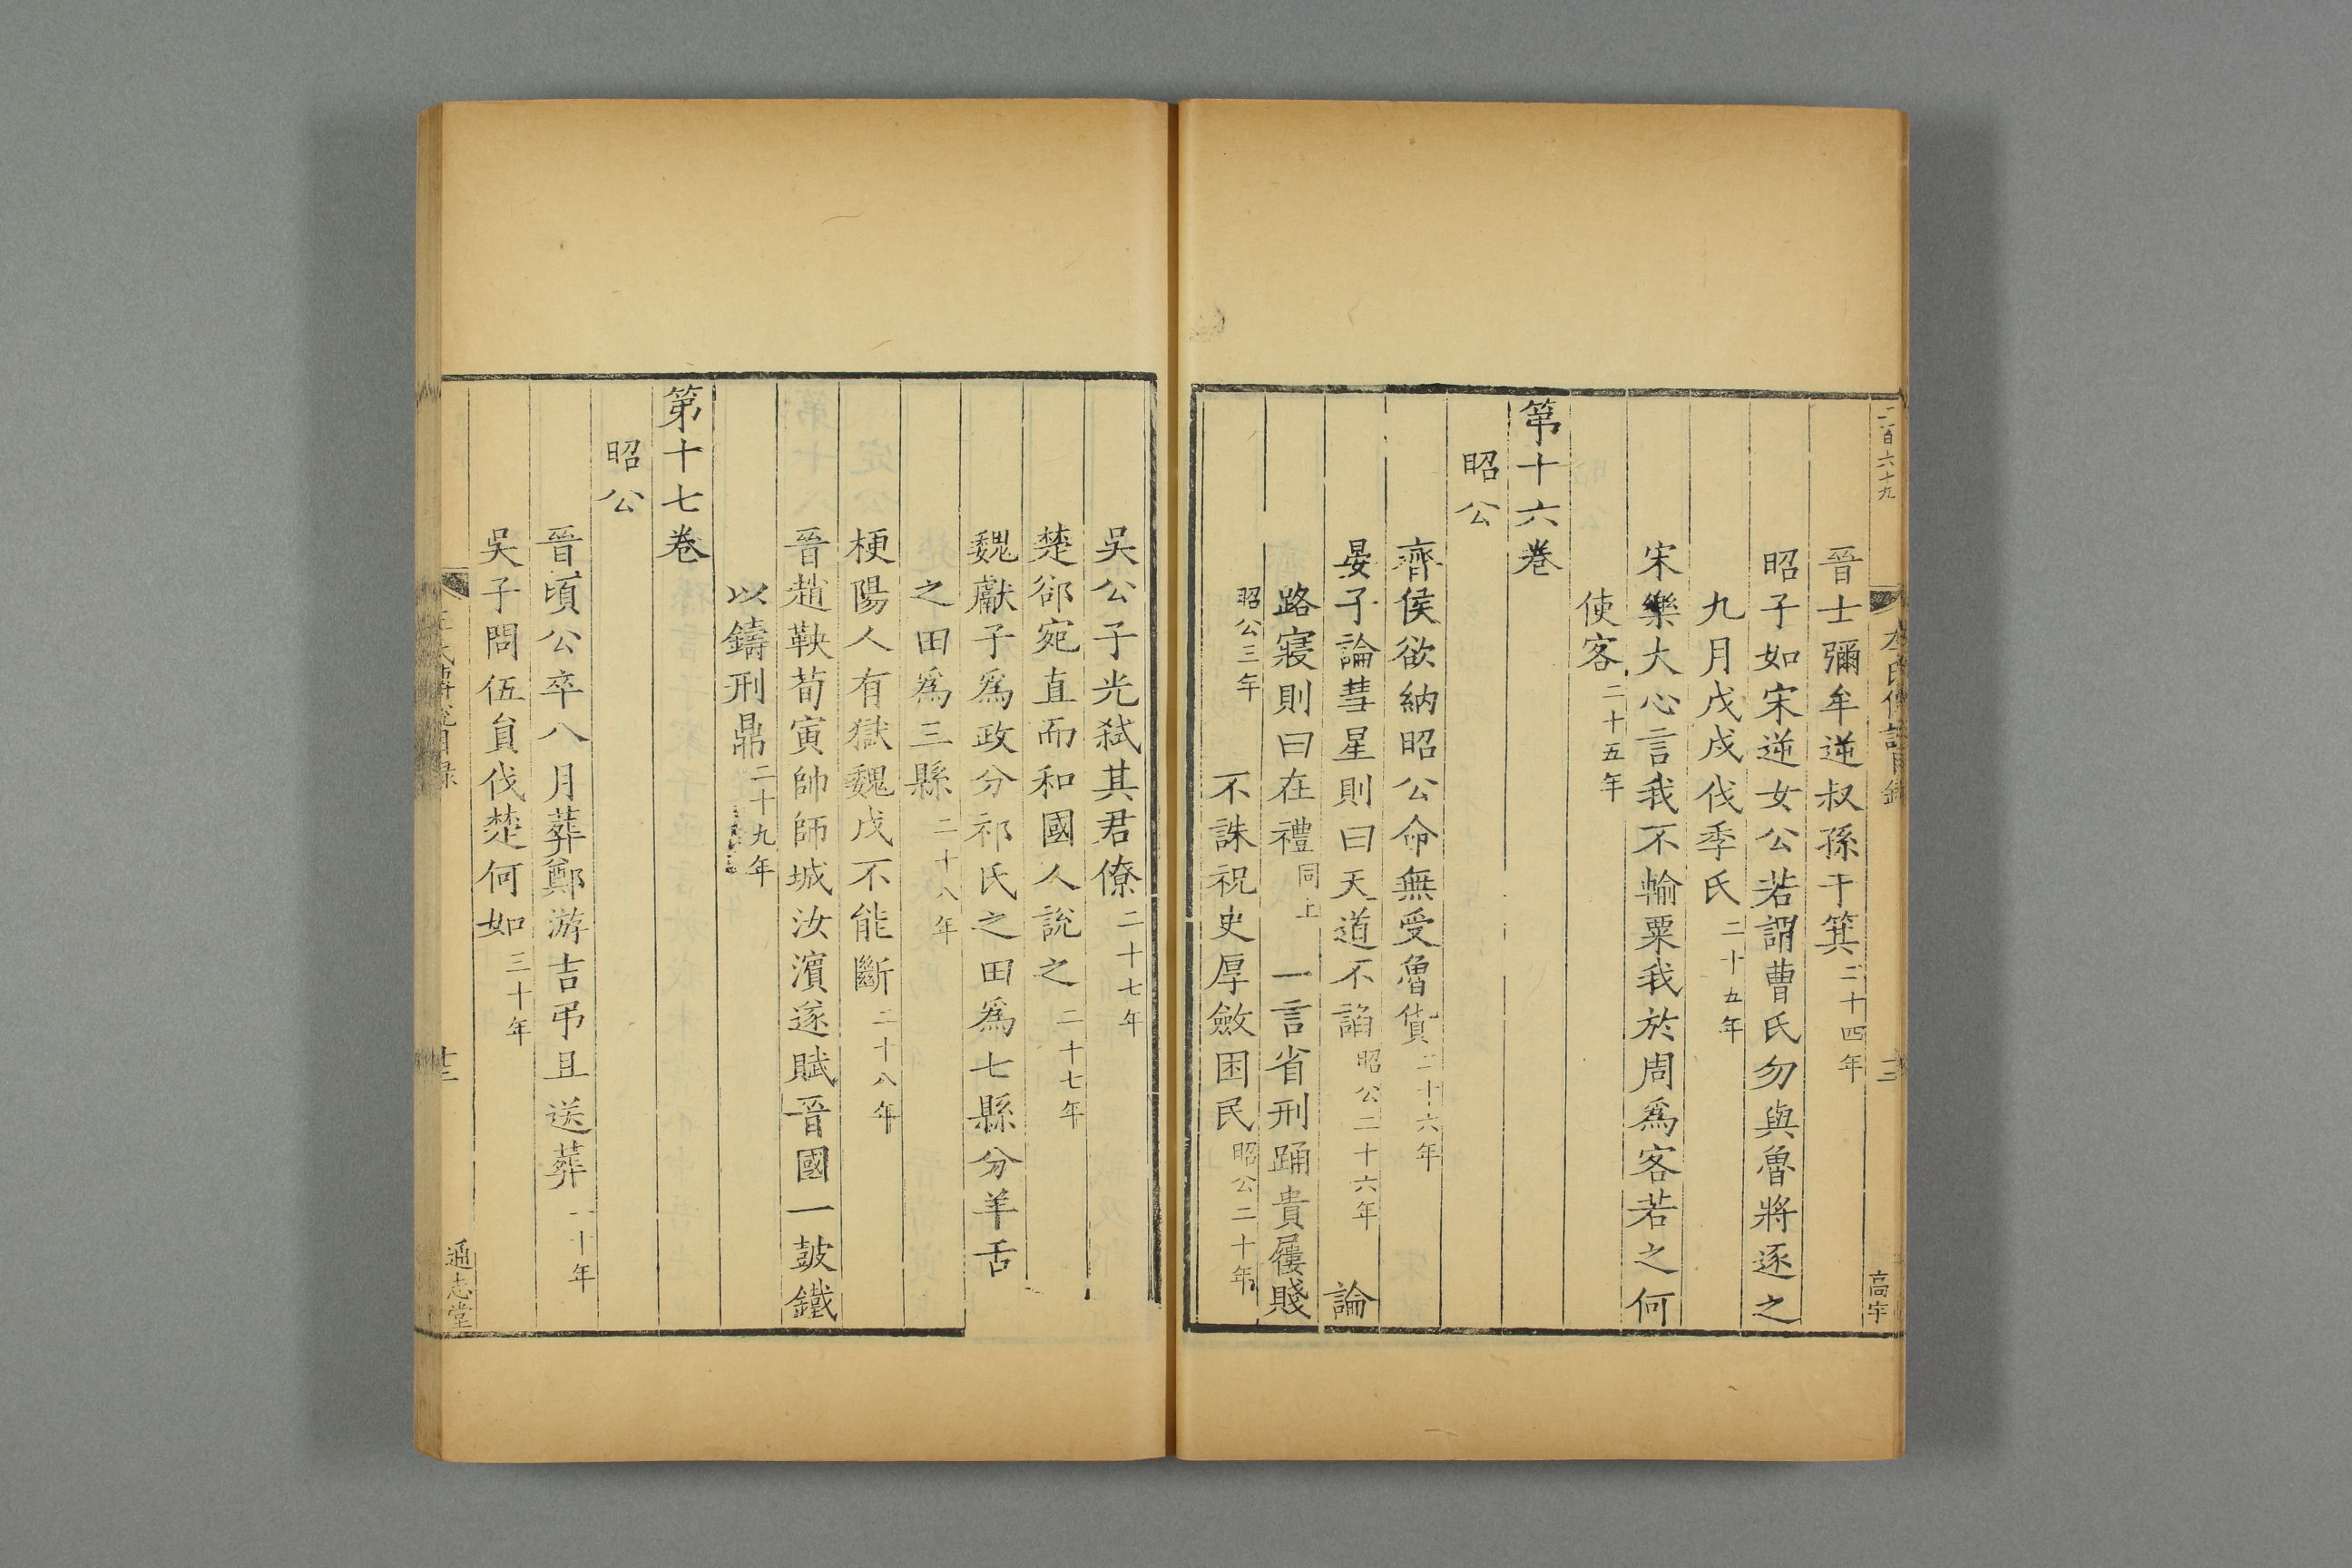 二百六十九
高宇
晉士彌牟逆叔孫于箕二十四年
昭子如宋逆女公若謂曹氏勿與魯將逐之
九月戊戌伐季氏二十五年
宋樂大心言我不輸粟我於周爲客若之何
使客二十五年
第十六卷
昭公
齊侯欲納昭公命無受魯貨二十六年
晏子論彗星則曰天道不謟昭公二十六年 論
路寢則曰在禮同上 一言省刑踊貴屨賤
昭公三年 不誅祝史厚斂困民昭公二十年
吳公子光弒其君僚二十七年
楚郤宛直而和國人說之二十七年
魏獻子爲政分祁氏之田爲七縣分羊舌
之田爲三縣二十八年
梗陽人有獄魏戊不能斷二十八年
晉趙鞅荀寅帥師城汝濱遂賦晉國一鼓鐵
以鑄刑鼎二十九年
第十七卷
昭公
晉頃公卒八月葬鄭游吉弔且送葬十年
吳子問伍員伐楚何如三十年
通志堂